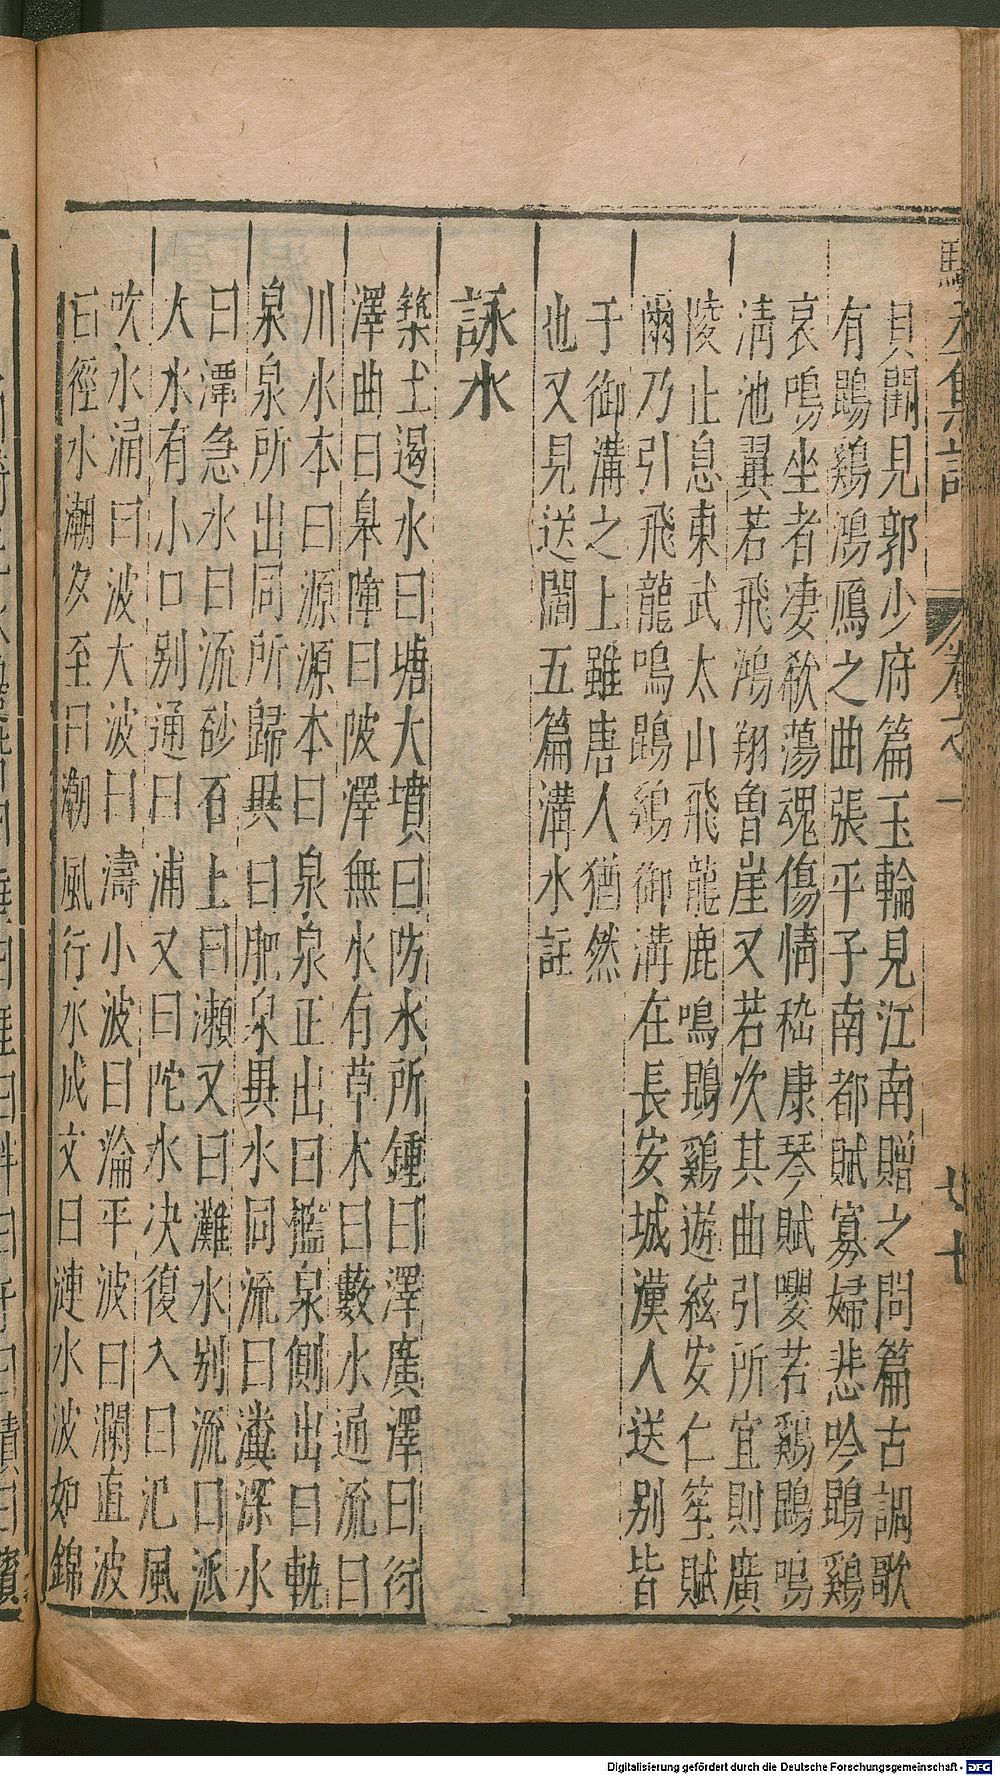 貝闕見郭少府篇玉輪見江南贈之問篇古調歌
有鵾鷄鴻鴈之曲張平子南都賦寡婦悲吟鵾鷄
哀鳴坐者凄欷蕩魂傷情嵇康琴賦嚶若鷄鵾鳴
清池翼若飛鴻翔魯崖又若次其曲引所宜則廣
陵止息東武太山飛龍鹿鳴鵾鷄遊絃安仁笙賦
爾乃引飛龍鳴鵾鷄御溝在長安城漢人送別皆
于御溝之上雖唐人猶然
也又見送閻五篇溝水註
詠水
築土遏水曰塘大墳曰防水所鍾曰澤廣澤曰衍
澤曲曰皋障曰陂澤無水有草木曰藪水通流曰
川水本曰源源本曰泉泉正出曰檻泉側出曰軌
泉泉所出同所歸異曰肥泉異水同流曰瀵深水
曰潭急水曰流砂石上曰瀨又曰灘水别流曰派
大水有小口别通曰浦又曰陀水决復入曰汜風
吹水涌曰波大波曰濤小波曰淪平波曰瀾直波
曰徑水潮夕至曰潮風行水成文曰漣水波如錦
卷之一
廿七
Digitalisierung gefördert durch die Deutsche Forschungsgemeinschaft - DFG